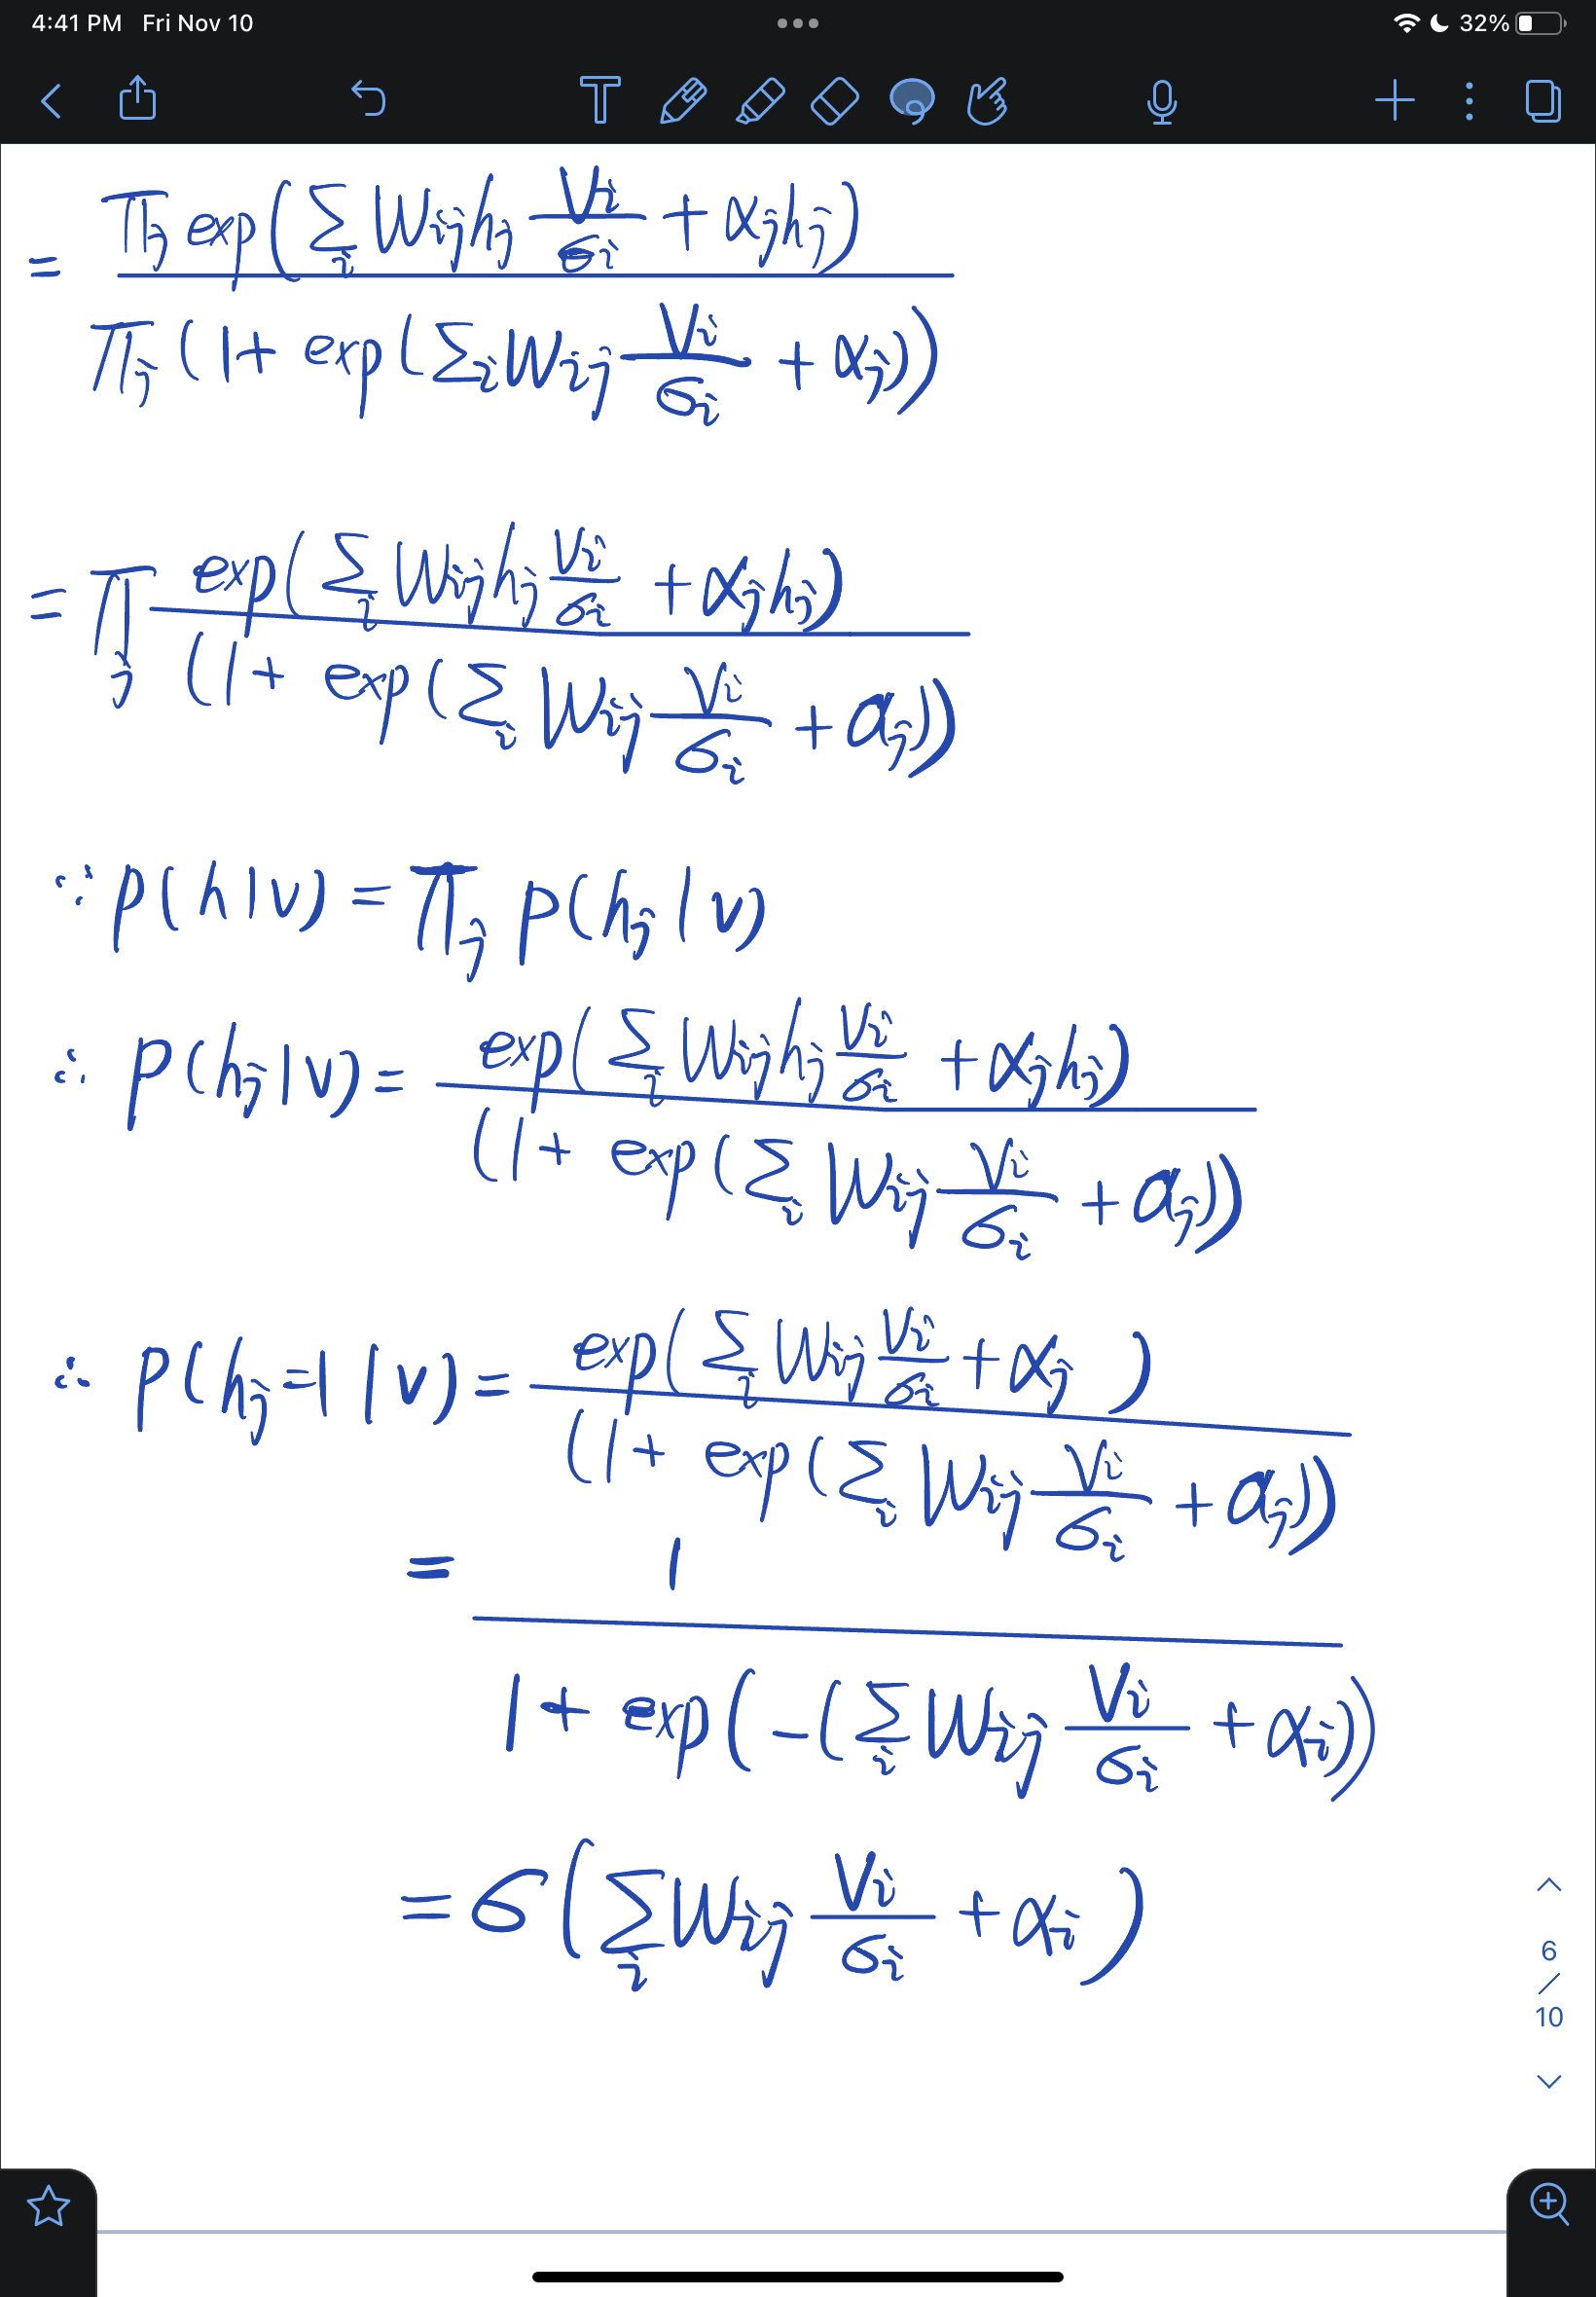 4:41 PM Fri Nov 10 32%
T
= Πⱼ exp(Σᵢ Wᵢⱼhⱼ Vᵢ/σᵢ + αⱼhⱼ) / Πⱼ (1 + exp(Σᵢ Wᵢⱼ Vᵢ/σᵢ + αⱼ))
= Πⱼ exp(Σᵢ Wᵢⱼhⱼ Vᵢ/σᵢ + αⱼhⱼ) / (1 + exp(Σᵢ Wᵢⱼ Vᵢ/σᵢ + αⱼ))
∵ P(h|v) = Πⱼ P(hⱼ|v)
∴ P(hⱼ|v) = exp(Σᵢ Wᵢⱼhⱼ Vᵢ/σᵢ + αⱼhⱼ) / (1 + exp(Σᵢ Wᵢⱼ Vᵢ/σᵢ + αⱼ))
∴ P(hⱼ=1|v) = exp(Σᵢ Wᵢⱼ Vᵢ/σᵢ + αⱼ) / (1 + exp(Σᵢ Wᵢⱼ Vᵢ/σᵢ + αⱼ))
= 1 / 1 + exp(-(Σᵢ Wᵢⱼ Vᵢ/σᵢ + αᵢ))
= σ(Σᵢ Wᵢⱼ Vᵢ/σᵢ + αᵢ)
6
/
10